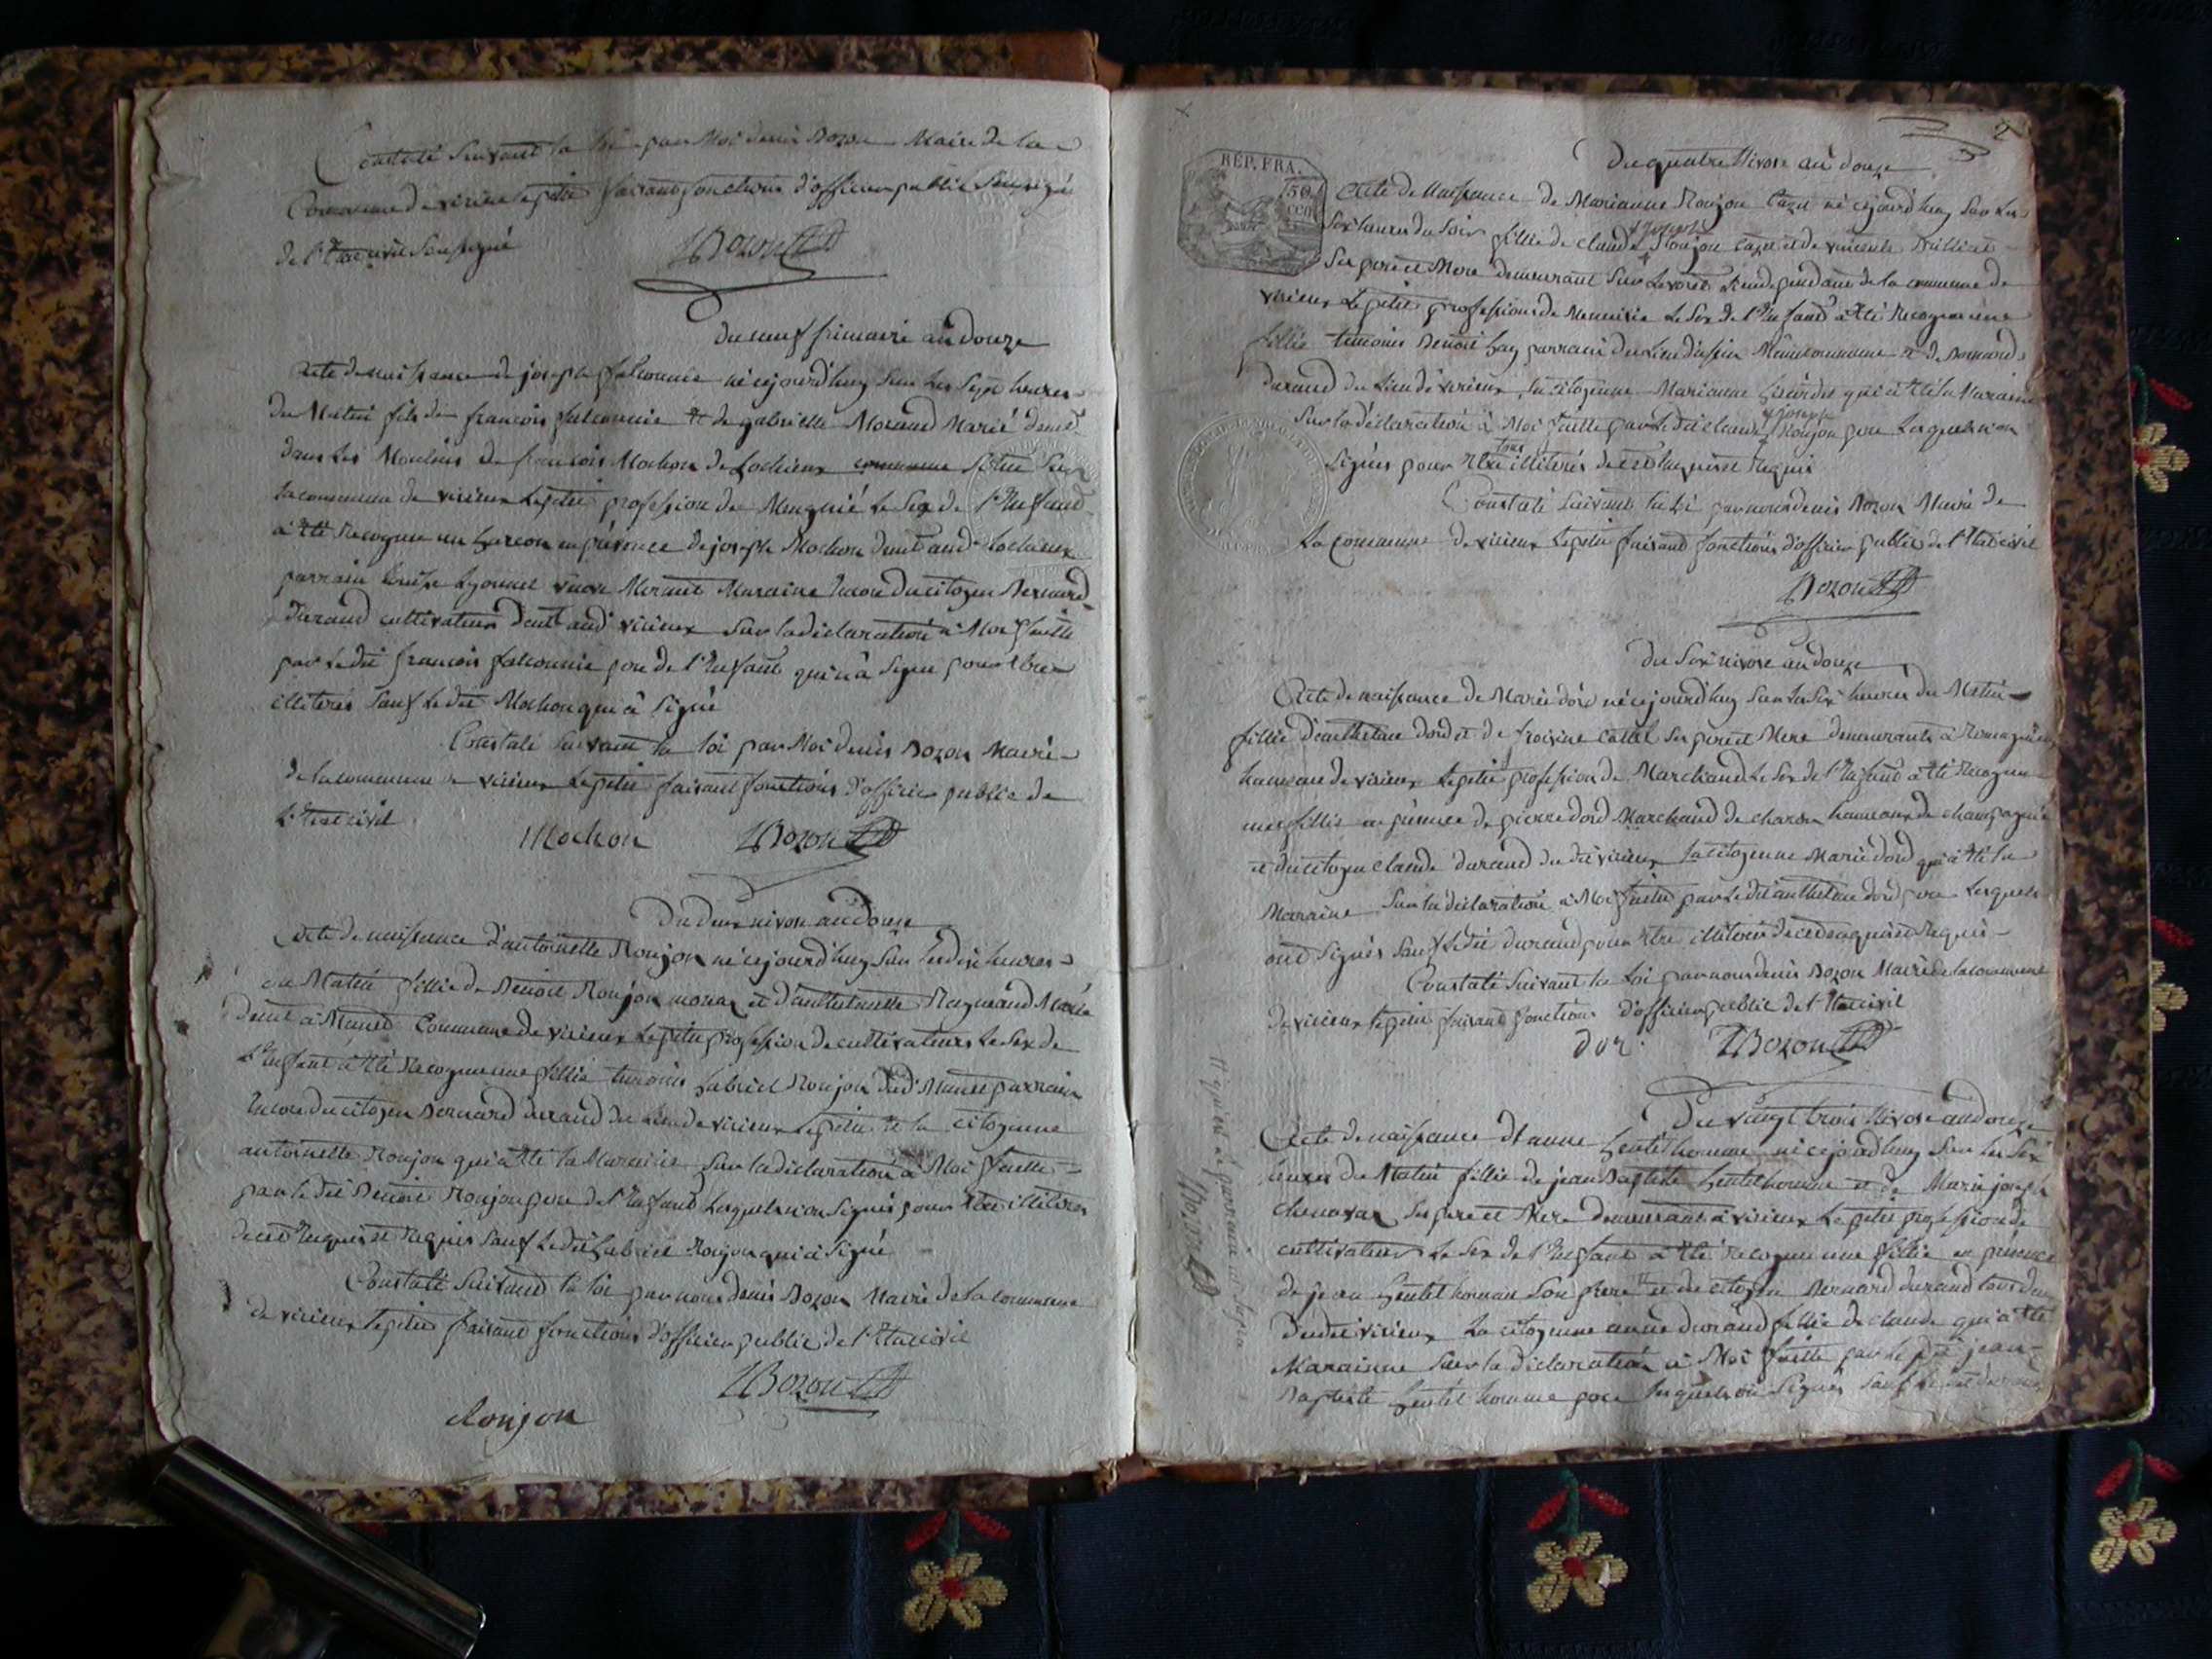 Constaté Suivant la loi par Moi denis Bozon Maire de la
Commune de virieu le petit faisant fonctions d'officier public
de l'Etat civil Soussigné
Bozon
du neuf frimaire an douze
Acte de naissance de joseph falconnie né cejourd'huy Sur Les Sept heures
du Matin fils de françois falconnie et de gabrielle Morand Marié demt
dans Les Moulins de francois Mochon de Lochieux commune Situé Sur
la commune de virieux Lepetit profession de Meugnié Le Sex de l'Enfand
a Eté Recognu un Garcon en présence de joseph Mochon demt aud Lochieux
parrain Louise Lyonnet Maraine Encore du citoyen Bernard
durand cultivateur demt aud virieux Sur la déclaration à Moi faitte
par Ledit francois falconnie pere de l'Enfant qui n'a Signé pour Etre
illiterés Sauf Le dit Mochon qui à Signé
Constaté Suivant la loi par Moi denis Bozon Maire
de la commune de virieux Lepetit faisant fonctions d'officier public de
L'Etat civil
Mochon Bozon
Du deux nivose an douze
Acte de naissance d'antoinette Roujon né cejourd'huy Sur les dix heures
du Matin fillie de Benoit Roujon et d'anthelmette Raymand Marié
demt à Commune de virieux Lepetit profession de cultivateurs Le Sex de
L'Enfant à Eté Recognu une fillie temoins Gabriel Roujon dud parrain
Encore du citoyen Bernard durand du Lieu de virieux Lepetit et la citoyenne
antoinette Roujon qui a Eté la Maraine Sur la déclaration à Moi faitte
par le dit Benoit Roujon pere de l'Enfant Lesquels n'on Signés pour Etre illiteres
de ce Enquis et Requis Sauf Le dit Gabriel Roujon qui à Signé
Constaté Suivand la loi par nous denis Bozon Maire de la commune
de virieux lepetit faisant fonctions d'officier public de l'Etat civil
Bozon
Roujon
2
REP. FRA.
50
cen
Du quatre Nivose an douze
Acte de Naissance de Marianne Roujon Cazet né cejourd'huy Sur Les
Six heures du Soir fillie de claude joseph Roujon Cazet et de
Ses pere et Mere demeurant Sur dependant de la commune de
virieux Lepetit profession de Menuisié Le Sex de l'Enfand à Eté Recognu une
fillie temoins Benoit parrain du Lieu Même commune et de Bernard
durand du Lieu de virieux, la citoyenne Marianne qui a Eté la Maraine
Sur la déclaration à Moi faitte par Le dit claude joseph Roujon pere Lesquels n'on
Signés pour Etre tous illiterés de ce Enquis et Requis
Constaté Suivant la Loi par nous denis Bozon Maire de
La Commune de virieux Lepetit faisand fonctions d'officier public de l'Etat civil
Bozon
du Six nivose an douze
Acte de naissance de Marie né cejourd'huy Sur Les Six heures du Matin
fillie d'anthelme dord et de Ses pere et Mere demeurants à
hameau de virieux Lepetit profession de Marchand Le Sex de l'Enfand à Eté Recognu
une fillie en présence de pierre dord Marchand de hameau de champagnie
et du citoyen claude durand du dit virieux La citoyenne Marie dord qui a Eté la
Maraine Sur la déclaration à Moi faitte par Le dit anthelme dord pere Lesquels
ont Signés Sauf Le dit durand pour Etre illiteré de ce enquis et Requis
Constaté Suivant la loi par nous denis Bozon Maire de la commune
de virieux lepetit faisant fonctions d'officier public de l'Etat civil
dor Bozon
Du vingt trois Nivose an douze
Acte de naissance d'anne Gentilhomme né cejourd'huy Sur Les Six
heures du Matin fillie de jean Baptiste Gentilhomme et de Marie joseph
Ses pere et Mere demeurant à virieux Lepetit profession de
cultivateurs Le Sex de l'Enfant à Eté Recognu une fillie en présence
de jean Gentilhomme Son frere et du citoyen Bernard durand tous deux
dudit virieux La citoyenne anne durand fillie de claude qui a Eté
Marainne Sur la déclaration à Moi faitte par Le dit jean
Baptiste Gentilhomme pere Lesquels on Signés Sauf Le dit durand
Bozon